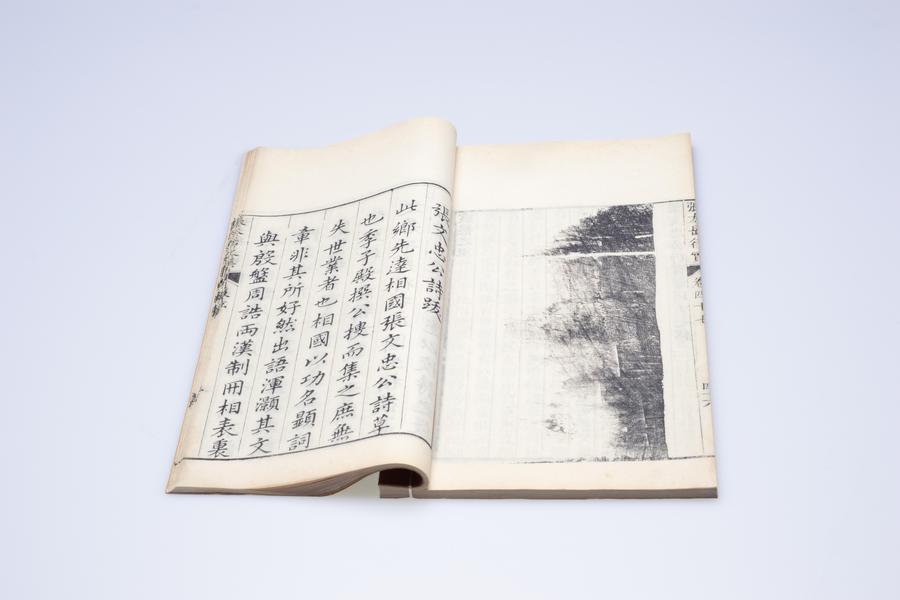 張文忠公詩跋
此鄉先達相國張文忠公詩草
也季子殿撰公摟而集之庶無
失世業者也相國以功名顯詞
章非其所好然出語渾灝其文
與殷盤周誥兩漢制冊相表裏